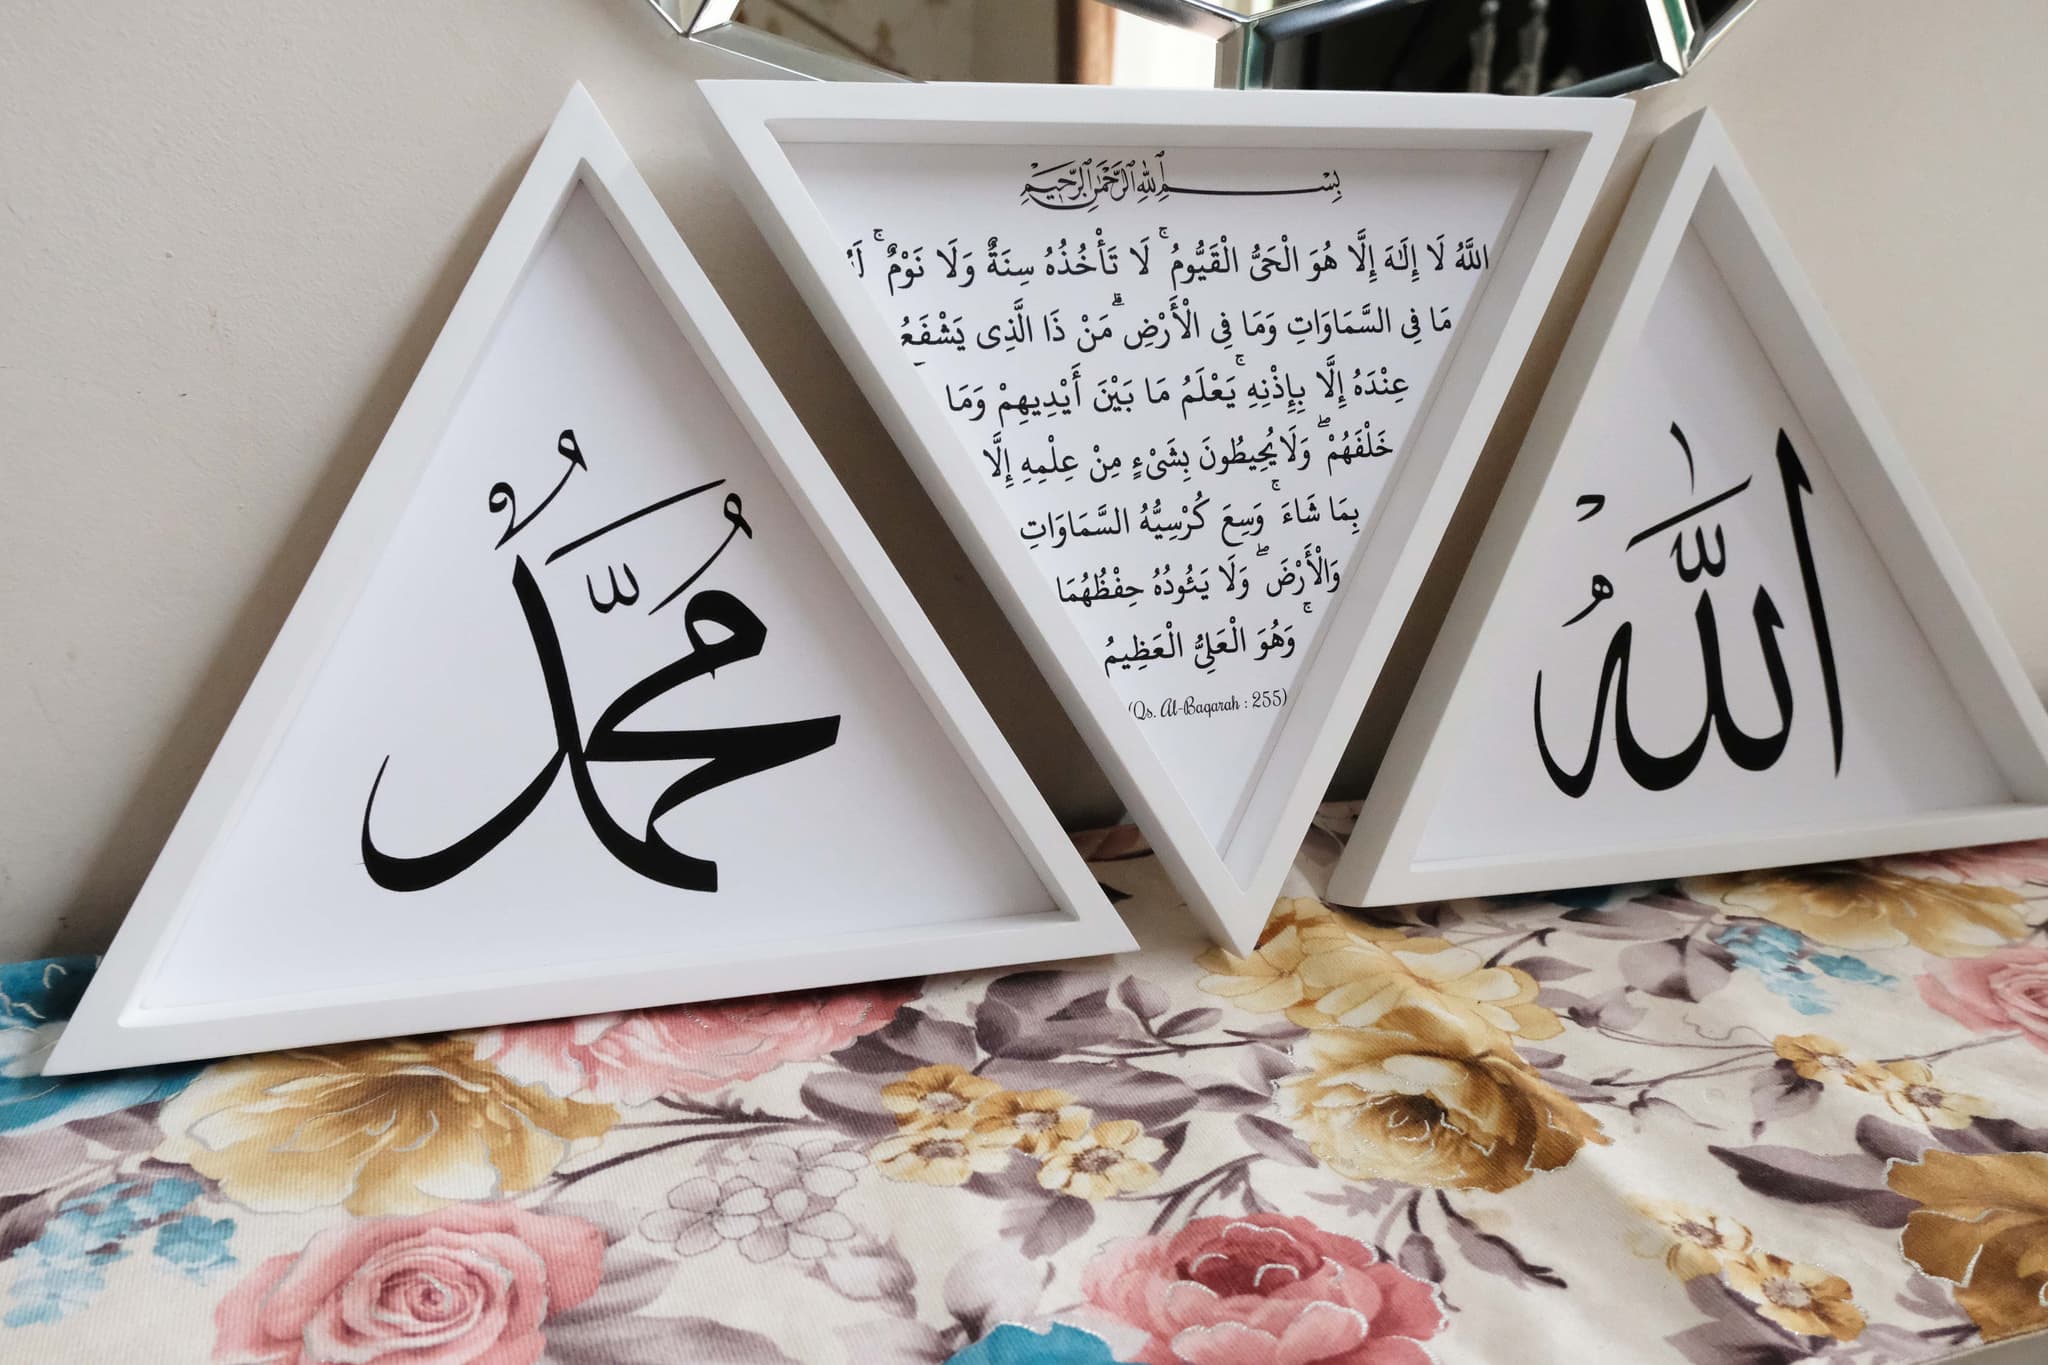 اللَّهُ
بِسْمِ ٱللَّهِ ٱلرَّحْمَٰنِ ٱلرَّحِيمِ
اللَّهُ لَا إِلَٰهَ إِلَّا هُوَ الْحَيُّ الْقَيُّومُ ۚ لَا تَأْخُذُهُ سِنَةٌ وَلَا نَوْمٌ ۚ
مَا فِى السَّمَاوَاتِ وَمَا فِى الْأَرْضِ ۗ مَنْ ذَا الَّذِى يَشْفَعُ
عِنْدَهُ إِلَّا بِإِذْنِهِ ۚ يَعْلَمُ مَا بَيْنَ أَيْدِيهِمْ وَمَا
خَلْفَهُمْ ۖ وَلَا يُحِيطُونَ بِشَىْءٍ مِنْ عِلْمِهِ إِلَّا
بِمَا شَاءَ ۚ وَسِعَ كُرْسِيُّهُ السَّمَاوَاتِ
وَالْأَرْضَ ۖ وَلَا يَئُودُهُ حِفْظُهُمَا ۚ
وَهُوَ الْعَلِىُّ الْعَظِيمُ
(Qs. Al-Baqarah : 255)
مُحَمَّدٌ